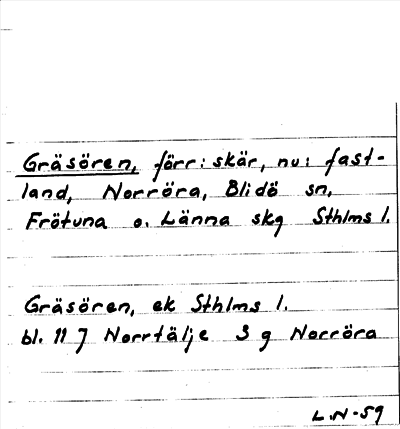 Gräsören, förr: skär, nu: fast-
land, Norröra, Blidö sn,
Frötuna o. Länna skg Sthlms l.
Gräsören, ek Sthlms l.
bl. 11 J Norrtälje S g Norröra
L.N-59